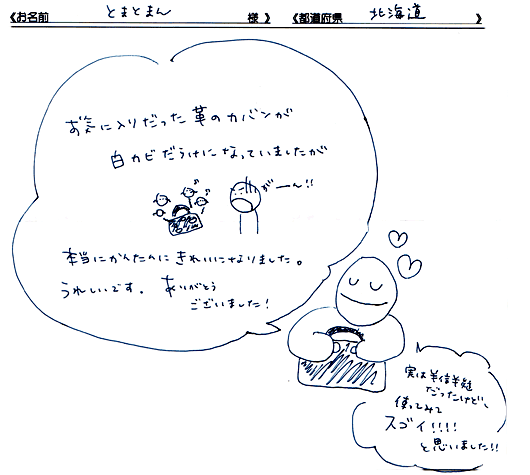 《お名前 とまとまん 様 》 《都道府県 北海道 》
お気に入りだった革のカバンが
白カビだらけになっていましたが
がーん!!
本当にかんたんにきれいになりました。
うれしいです。ありがとう
ございました!
実は半信半疑
だったけど、
使ってみて
スゴイ!!!!
と思いました!!